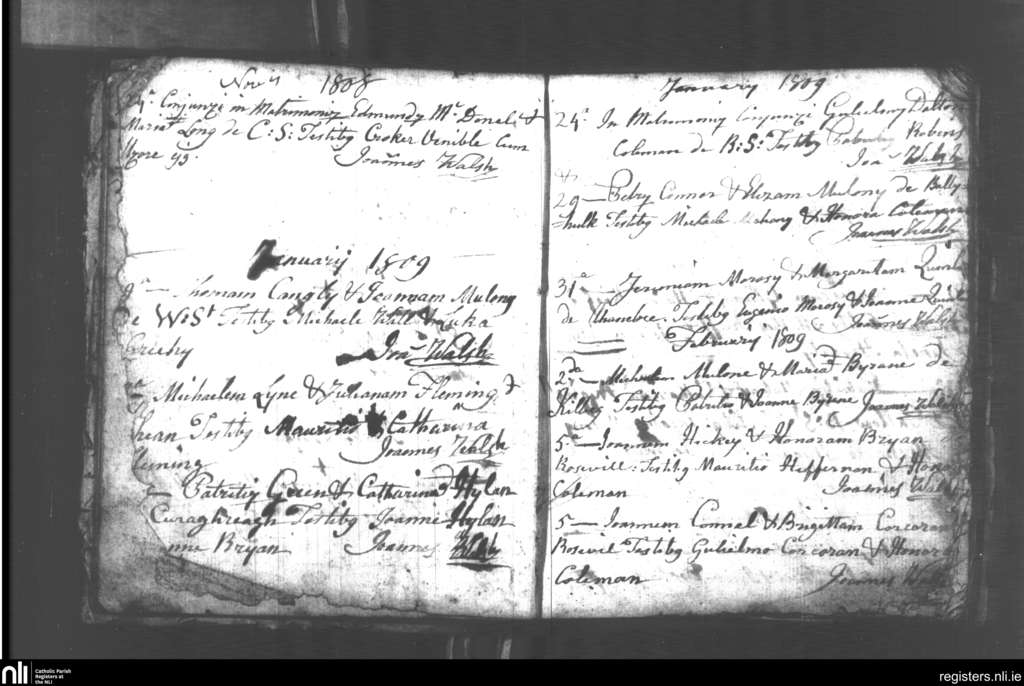 Nov.r 1808
24.a Conjunxi in Matrimoniũ Edmundũ Mc Donel &
Mariã Long de C: S: Testibȝ Croker Venible cum
Joannes Walsh
January 1809
Thomam & Joannam Mulony
de W: St Testibȝ Michaele & Luka
Creehy
Joa.s Walsh
Michaelem Lyne & Julianam Fleming d
Testibȝ Mauritio & Catharina
Fleming Joannes Walsh
Patritiũ Green & Catharinã Hylan
Curaghreagh Testibȝ Joanne Hylan
Bryan Joannes Walsh
January 1809
24.a In Matrimoniũ Conjunxi Gulielmũ Dalton
Coleman de B: S: Testibȝ Robins
Joa.s Walsh
29 — Connor & Elizam Mulony de Bally-
hulk Testibȝ Michaele & Honora Coleman
Joannes Walsh
31.a — Jeremiam Morosy & Margaritam
de Testibȝ Eugenio Morosy & Joanne
Joannes Walsh
February 1809
2.da — Michaelem Mulone & Mariã Byrane de
Testibȝ Patritio & Joanne Byrane Joannes Walsh
5.a — Joannem Hickey & Honoram Bryan
Rosevill: Testibȝ Mauritio Heffernan & Honora
Coleman Joannes Walsh
5 — Joannem Connel & Brigittam Corcoran
Rosevil Testibȝ Gulielmo Corcoran & Honora
Coleman Joannes Walsh
nli Catholic Parish
Registers at
the NLI
registers.nli.ie